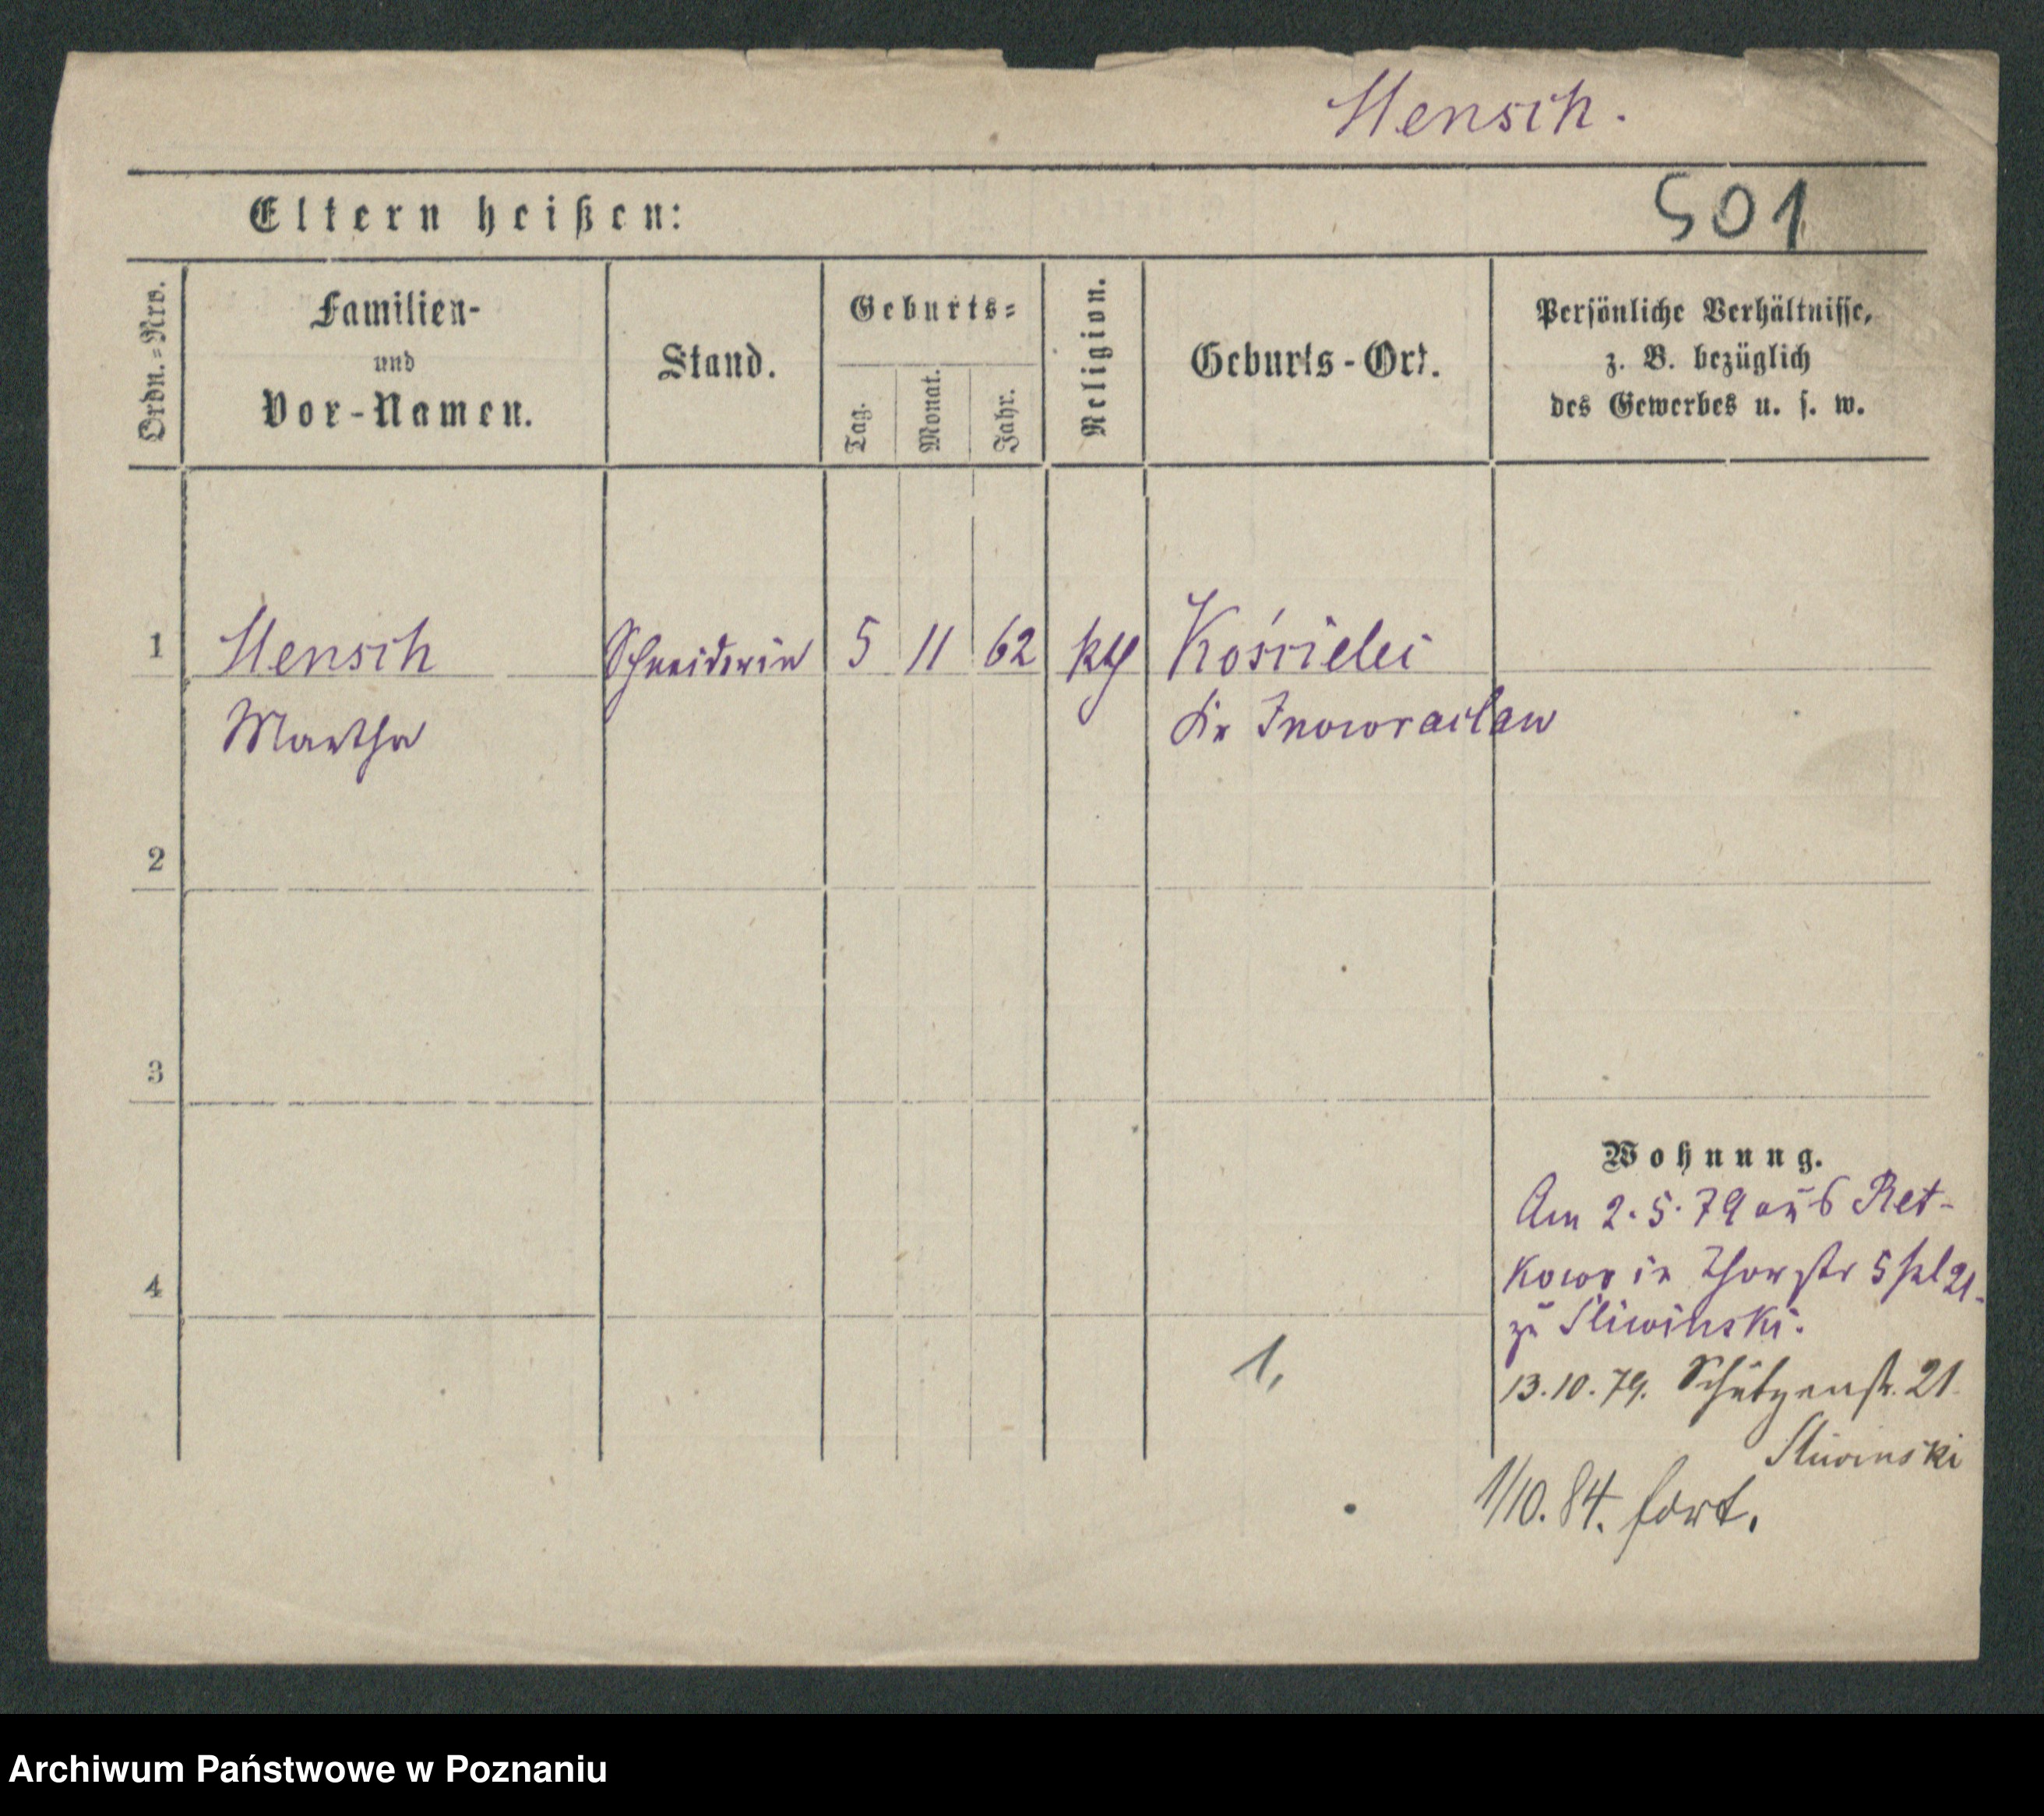 Hensch.
Eltern heißen:
501
Ordn.=Nro.
Familien-
und
Vor-Namen.
Stand.
Geburts=
Tag.
Monat.
Jahr.
Religion.
Geburts-Ort.
Persönliche Verhältnisse,
z. B. bezüglich
des Gewerbes u. s. w.
1 Hensch Schneiderin 5 11 62 kth Kościelec
Martha Kr Inowraclaw
2
3
Wohnung.
Am 2.5.79 aus Ret-
4 kowo in Thorstr 5
zu Sliwinski.
1,
13.10.79. Schützenstr. 21
Sliwinski
1/10. 84. fort.
Archiwum Państwowe w Poznaniu